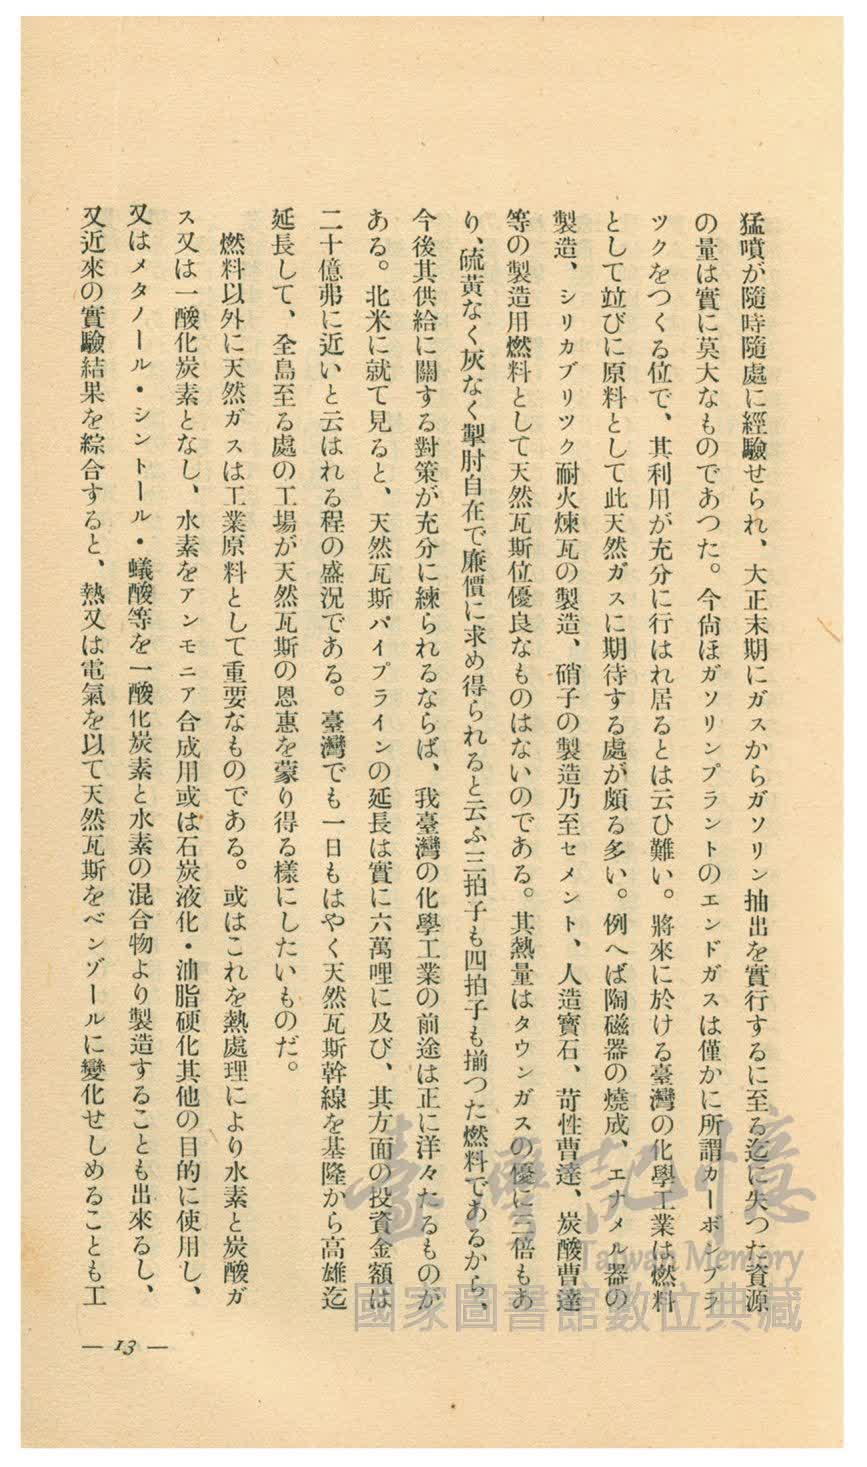 猛噴が隨時隨處に經驗せられ、大正末期にガスからガソリン抽出を實行するに至る迄に失つた資源
の量は實に莫大なものであつた。今尙ほガソリンプラントのエンドガスは僅かに所謂カーボンブラ
ツクをつくる位で、其利用が充分に行はれ居るとは云ひ難い。將來に於ける臺灣の化學工業は燃料
として竝びに原料として此天然ガスに期待する處が頗る多い。例へば陶磁器の燒成、エナメル器の
製造、シリカブリツク耐火煉瓦の製造、硝子の製造乃至セメント、人造寶石、苛性曹達、炭酸曹達
等の製造用燃料として天然瓦斯位優良なものはないのである。其熱量はタウンガスの優に三倍もあ
り、硫黃なく灰なく掣肘自在で廉價に求め得られると云ふ三拍子も四拍子も揃つた燃料であるから、
今後其供給に關する對策が充分に練られるならば、我臺灣の化學工業の前途は正に洋々たるものが
ある。北米に就て見ると、天然瓦斯パイプラインの延長は實に六萬哩に及び、其方面の投資金額は
二十億弗に近いと云はれる程の盛況である。臺灣でも一日もはやく天然瓦斯幹線を基隆から高雄迄
延長して、全島至る處の工場が天然瓦斯の恩惠を蒙り得る樣にしたいものだ。
燃料以外に天然ガスは工業原料として重要なものである。或はこれを熱處理により水素と炭酸ガ
ス又は一酸化炭素となし、水素をアンモニア合成用或は石炭液化・油脂硬化其他の目的に使用し、
又はメタノール・シントール・蟻酸等を一酸化炭素と水素の混合物より製造することも出來るし、
又近來の實驗結果を綜合すると、熱又は電氣を以て天然瓦斯をベンゾールに變化せしめることも工
— 13 —
臺灣記憶
Taiwan Memory
國家圖書館數位典藏